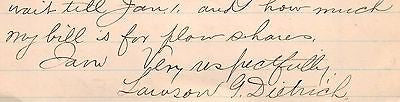 wait till Jan. 1, and how much
my bill is for plow shares.
I am Very respectfully,
Lawson G. Dietrick